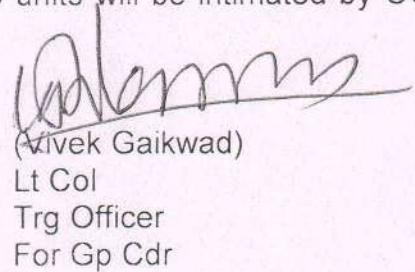 units will be intimated by
(Vivek Gaikwad)
Lt Col
Trg Officer
For Gp Cdr